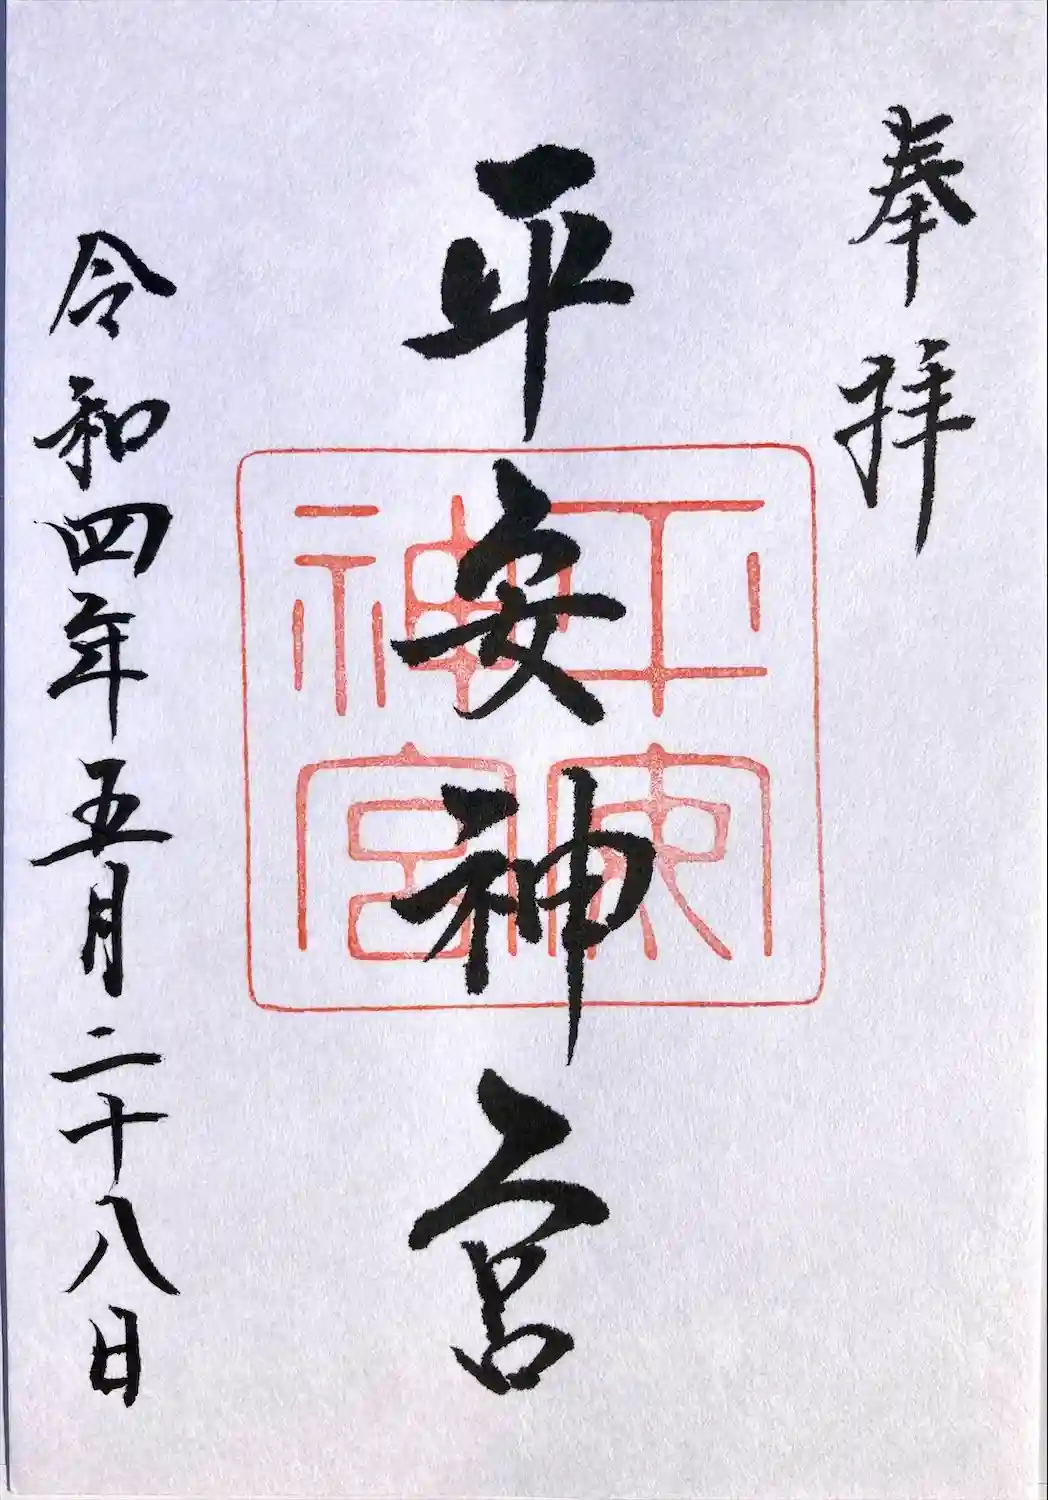 奉拝
平安神宮
平安神宮
令和四年五月二十八日